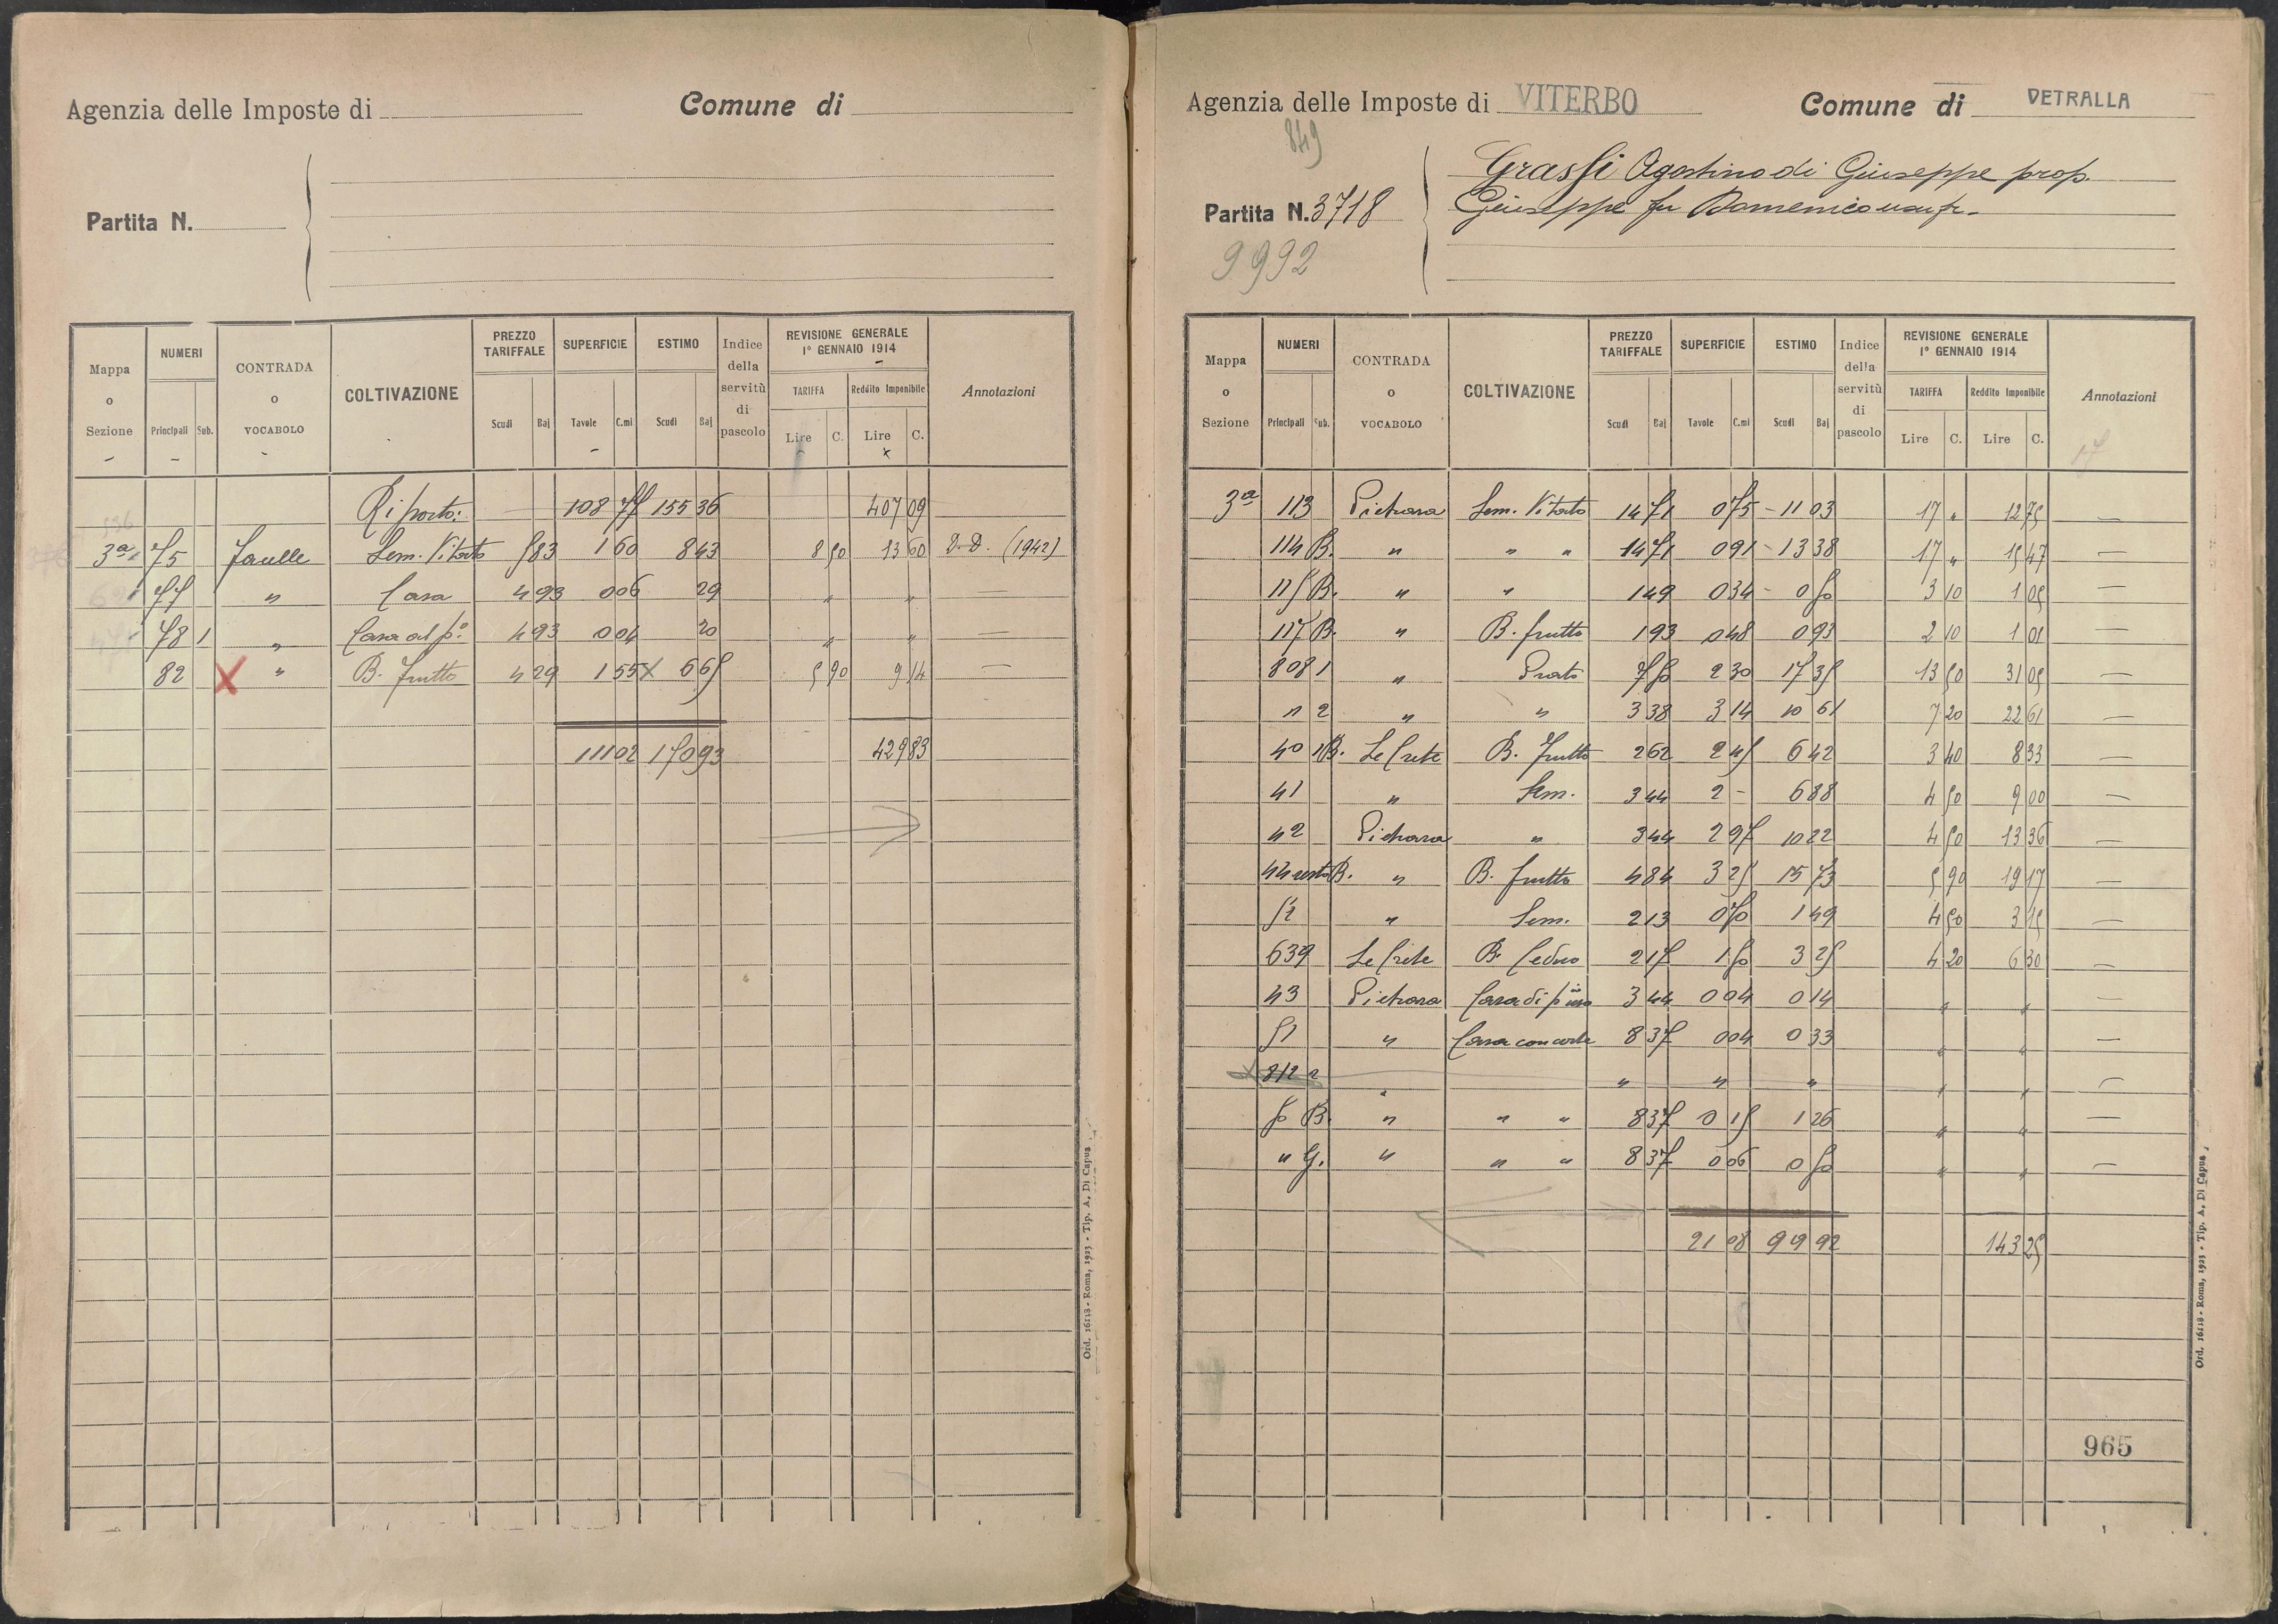 Agenzia delle Imposte di
Comune di
Partita N.
Mappa o Sezione | NUMERI Principali Sub. | CONTRADA o VOCABOLO | COLTIVAZIONE | PREZZO TARIFFALE Scudi Baj | SUPERFICIE Tavole C.mi | ESTIMO Scudi Baj | Indice della servitù di pascolo | REVISIONE GENERALE 1° GENNAIO 1914 TARIFFA Lire C. Reddito Imponibile Lire C. | Annotazioni
Riporto: 108 77 155 36 407 09
3ª 75 Jaulle Sem. Vitato 583 1 60 843 8 50 13 60 D.D. (1942)
77 " Casa 493 006 29 " " —
78 1 " Casa al pº. 493 004 20 " " —
82 X " B. frutto 429 1 55 X 665 5 90 9 14 —
111 02 170 93 429 83
Ord. 16118 - Roma, 1923 - Tip. A. Di Capua
Agenzia delle Imposte di VITERBO
Comune di VETRALLA
849
Partita N. 3718
9992
Grassi Agostino di Giuseppe prop.
Giuseppe fu Domenico usufr.
Mappa o Sezione | NUMERI Principali Sub. | CONTRADA o VOCABOLO | COLTIVAZIONE | PREZZO TARIFFALE Scudi Baj | SUPERFICIE Tavole C.mi | ESTIMO Scudi Baj | Indice della servitù di pascolo | REVISIONE GENERALE 1° GENNAIO 1914 TARIFFA Lire C. Reddito Imponibile Lire C. | Annotazioni
17
3ª 113 Pietrara Sem. Vitato 14 71 0 75 - 11 03 17 " 12 75 —
114 B. " " " 14 71 0 91 - 13 38 17 " 15 47 —
115 B. " " 1 49 0 34 - 0 50 3 10 1 05 —
117 B. " B. frutto 1 93 0 48 0 93 2 10 1 01 —
808 1 " Prato 7 50 2 30 17 35 13 50 31 05 —
" 2 " " 3 38 3 14 10 61 7 20 22 61 —
40 1B. Le Crete B. frutto 2 62 2 45 6 42 3 40 8 33 —
41 " Sem. 3 44 2 - 6 88 4 50 9 00 —
42 Pietrara " 3 44 2 97 10 22 4 50 13 36 —
44 resto B. " B. frutto 4 84 3 25 15 73 5 90 19 17 —
52 " Sem. 2 13 0 70 1 49 4 50 3 15 —
639 Le Crete B. Ceduo 2 17 1 50 3 25 4 20 6 30 —
43 Pietrara Casa di più 3 44 0 04 0 14 " " —
51 " Casa con corte 8 37 0 04 0 33 " " —
812 2 " " " " " " —
50 B. " " " 8 37 0 15 1 26 " " —
" G. " " " 8 37 0 06 0 50 " " —
21 08 99 92 143 25
965
Ord. 16118 - Roma, 1923 - Tip. A. Di Capua